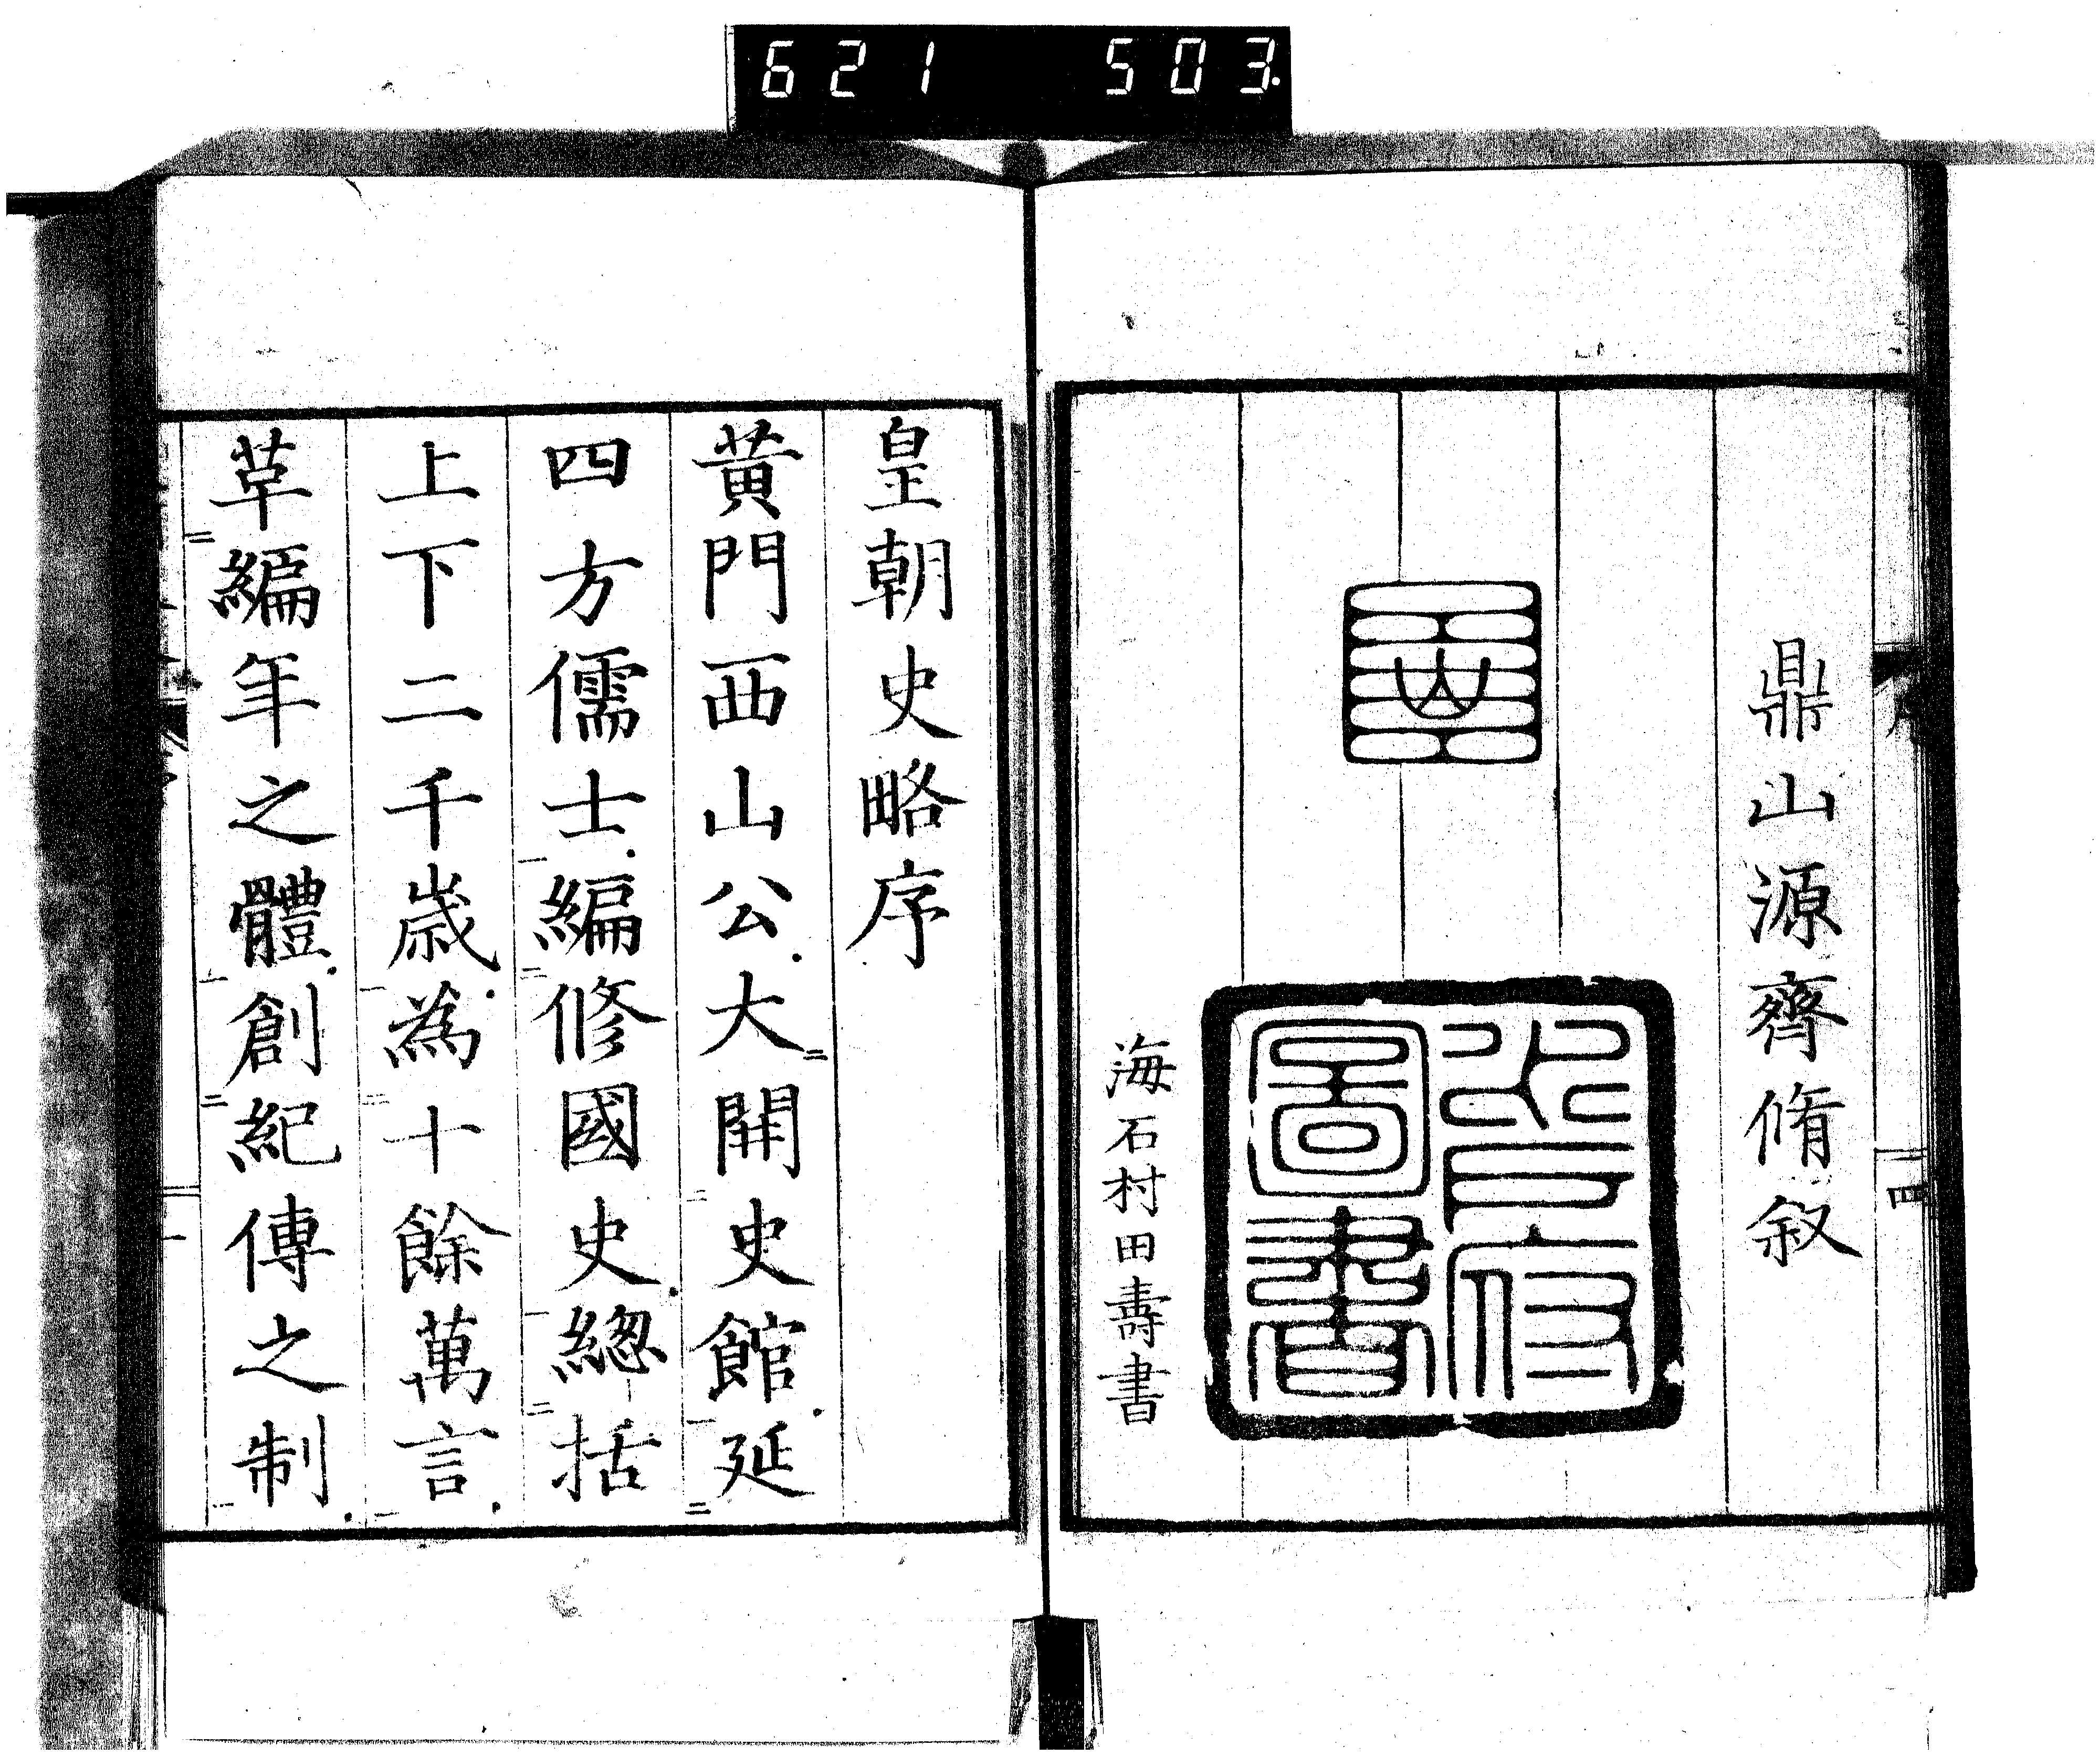 621 503
鼎山源齊脩叙
海石村田壽書
皇朝史略序
黄門西山公大開史館延
四方儒士編修國史緫括
上下二千歳為十餘萬言
革編年之體創紀傳之制